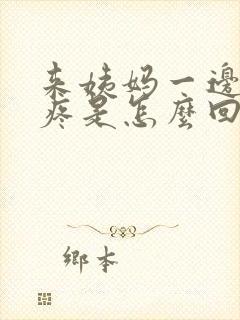 来姨妈一邊
疼是怎麼回
鄉本